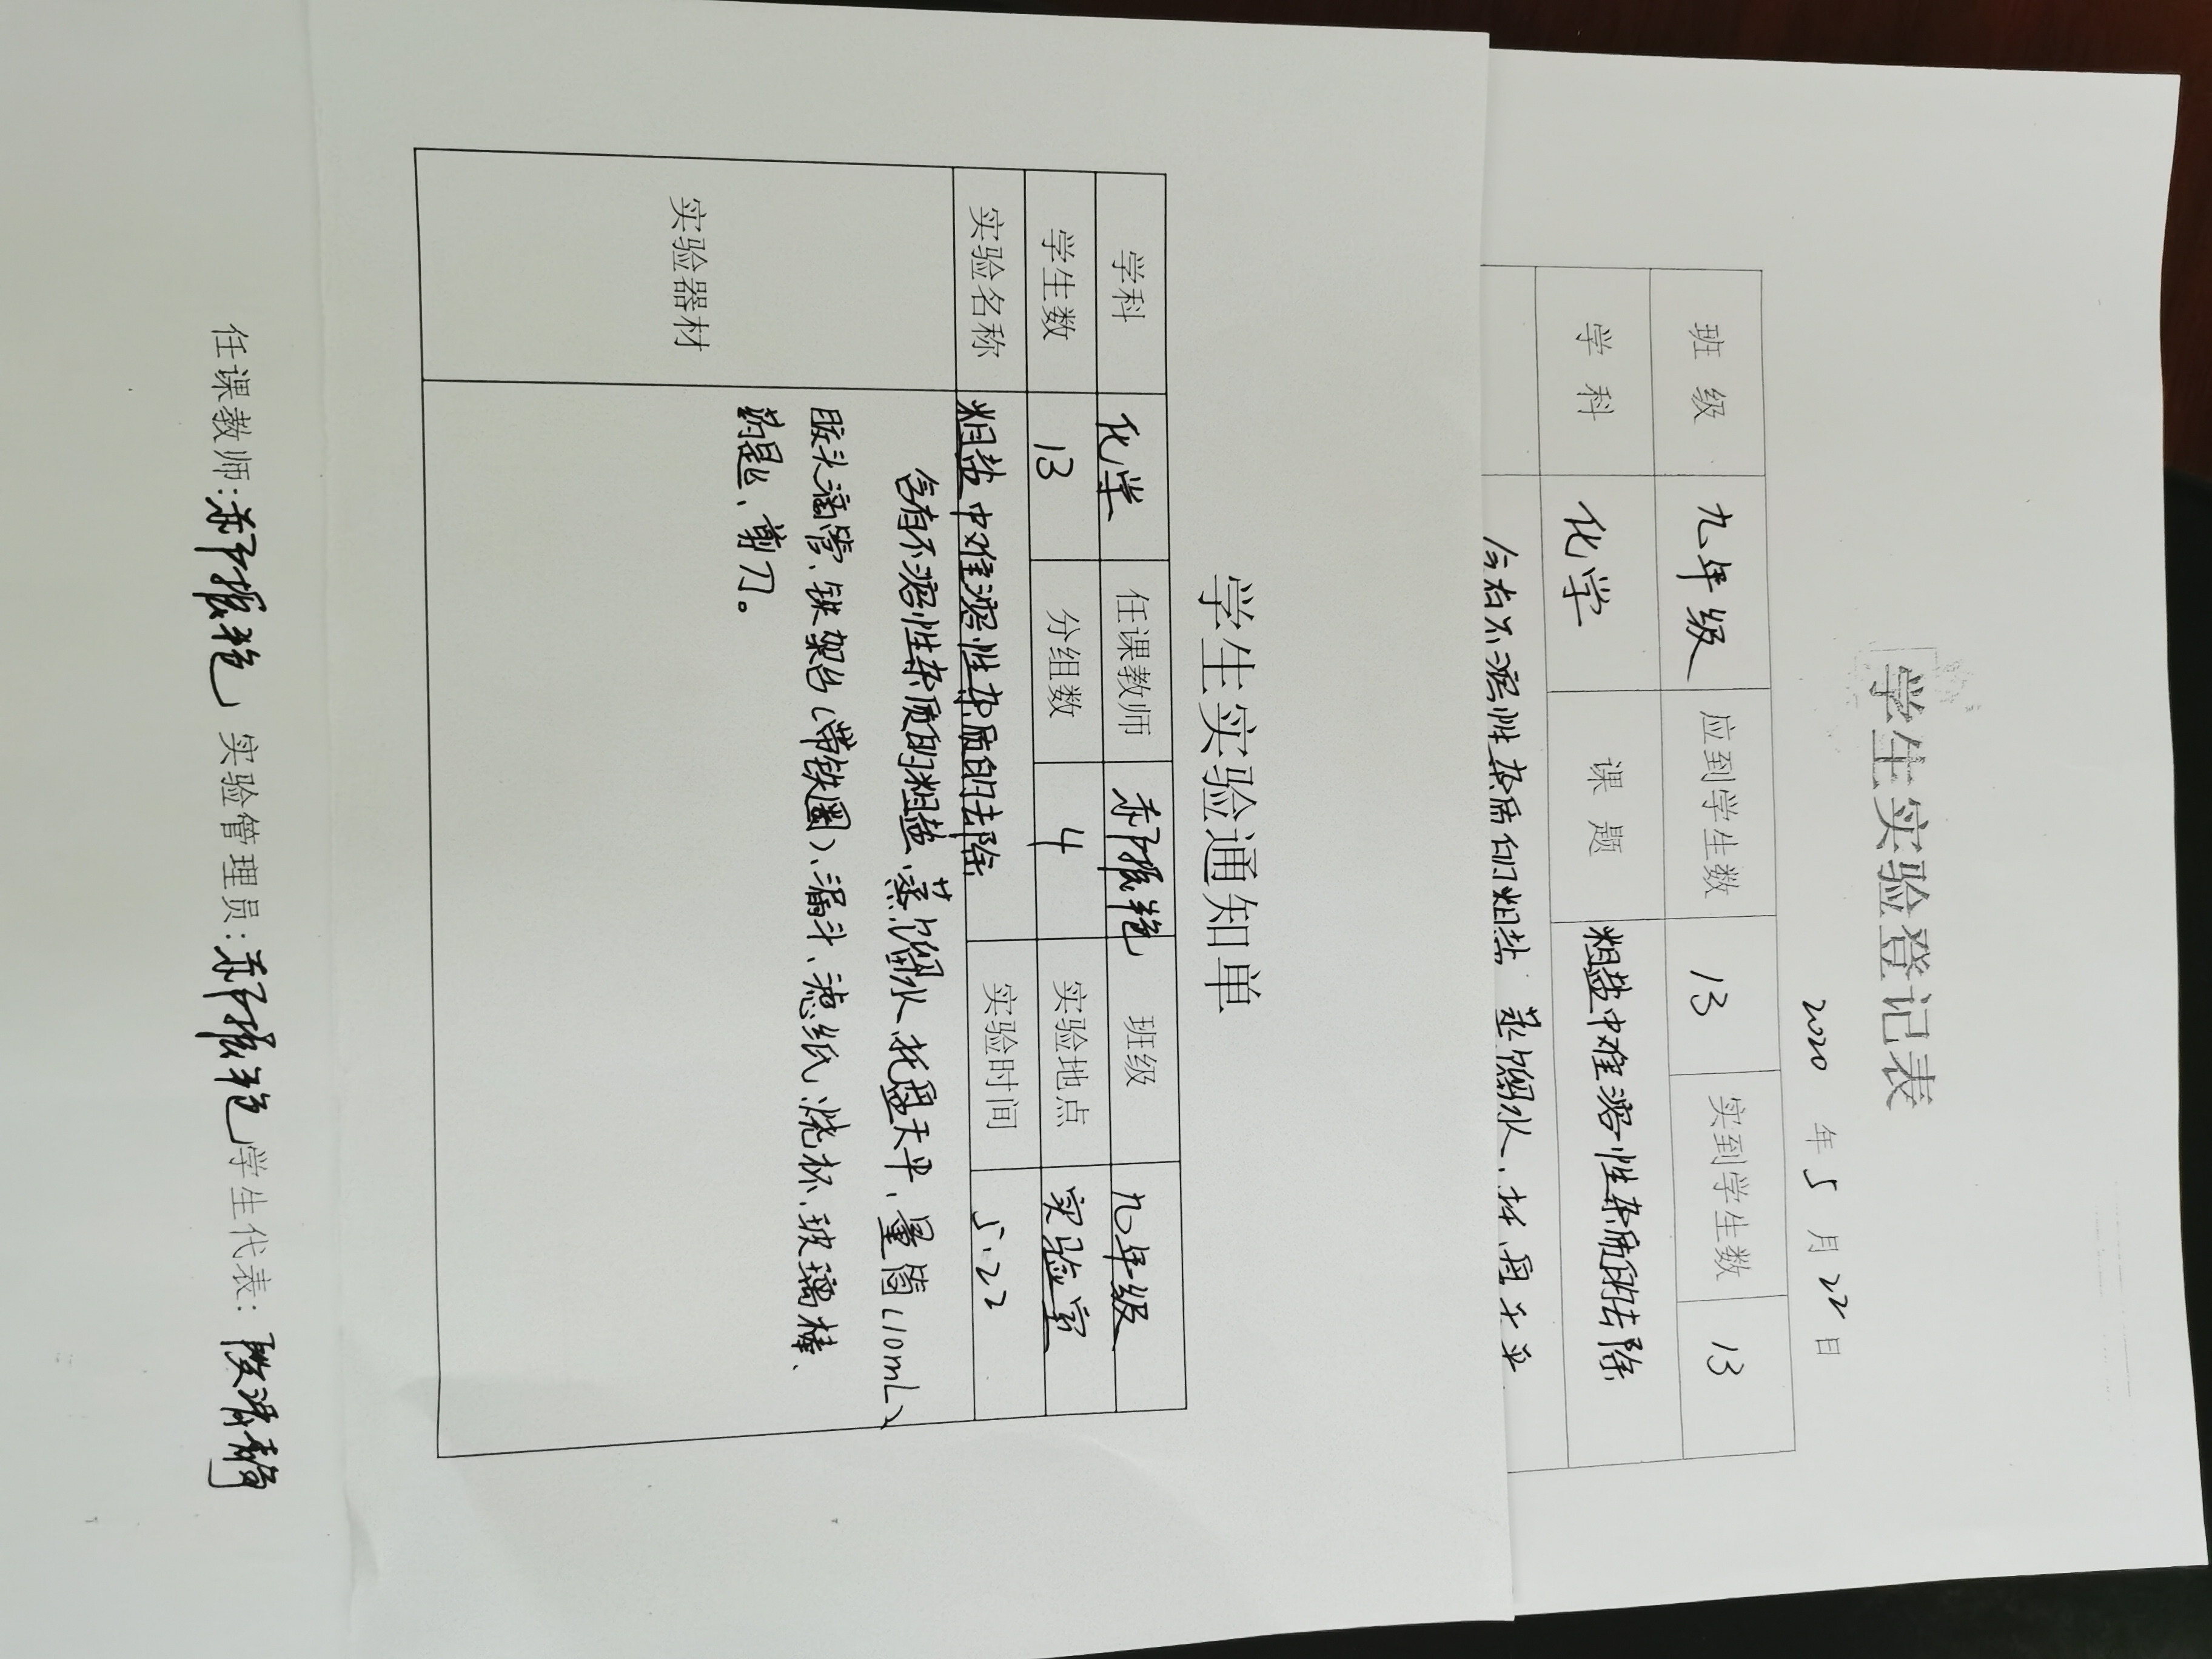 学生实验登记表
2020 年 5 月 22 日
班 级 九年级 应到学生数 13 实到学生数 13
学 科 化学 课 题 粗盐中难溶性杂质的去除
含有不溶性杂质的粗盐 蒸馏水、托盘天平
学生实验通知单
学科 化学 任课教师 班级 九年级
学生数 13 分组数 4 实验地点 实验室
实验名称 粗盐中难溶性杂质的去除 实验时间 5.22
实验器材
含有不溶性杂质的粗盐、蒸馏水、托盘天平、量筒(10mL)、
胶头滴管、铁架台(带铁圈)、漏斗、滤纸、烧杯、玻璃棒、
药匙、剪刀。
任课教师: 实验管理员: 学生代表: